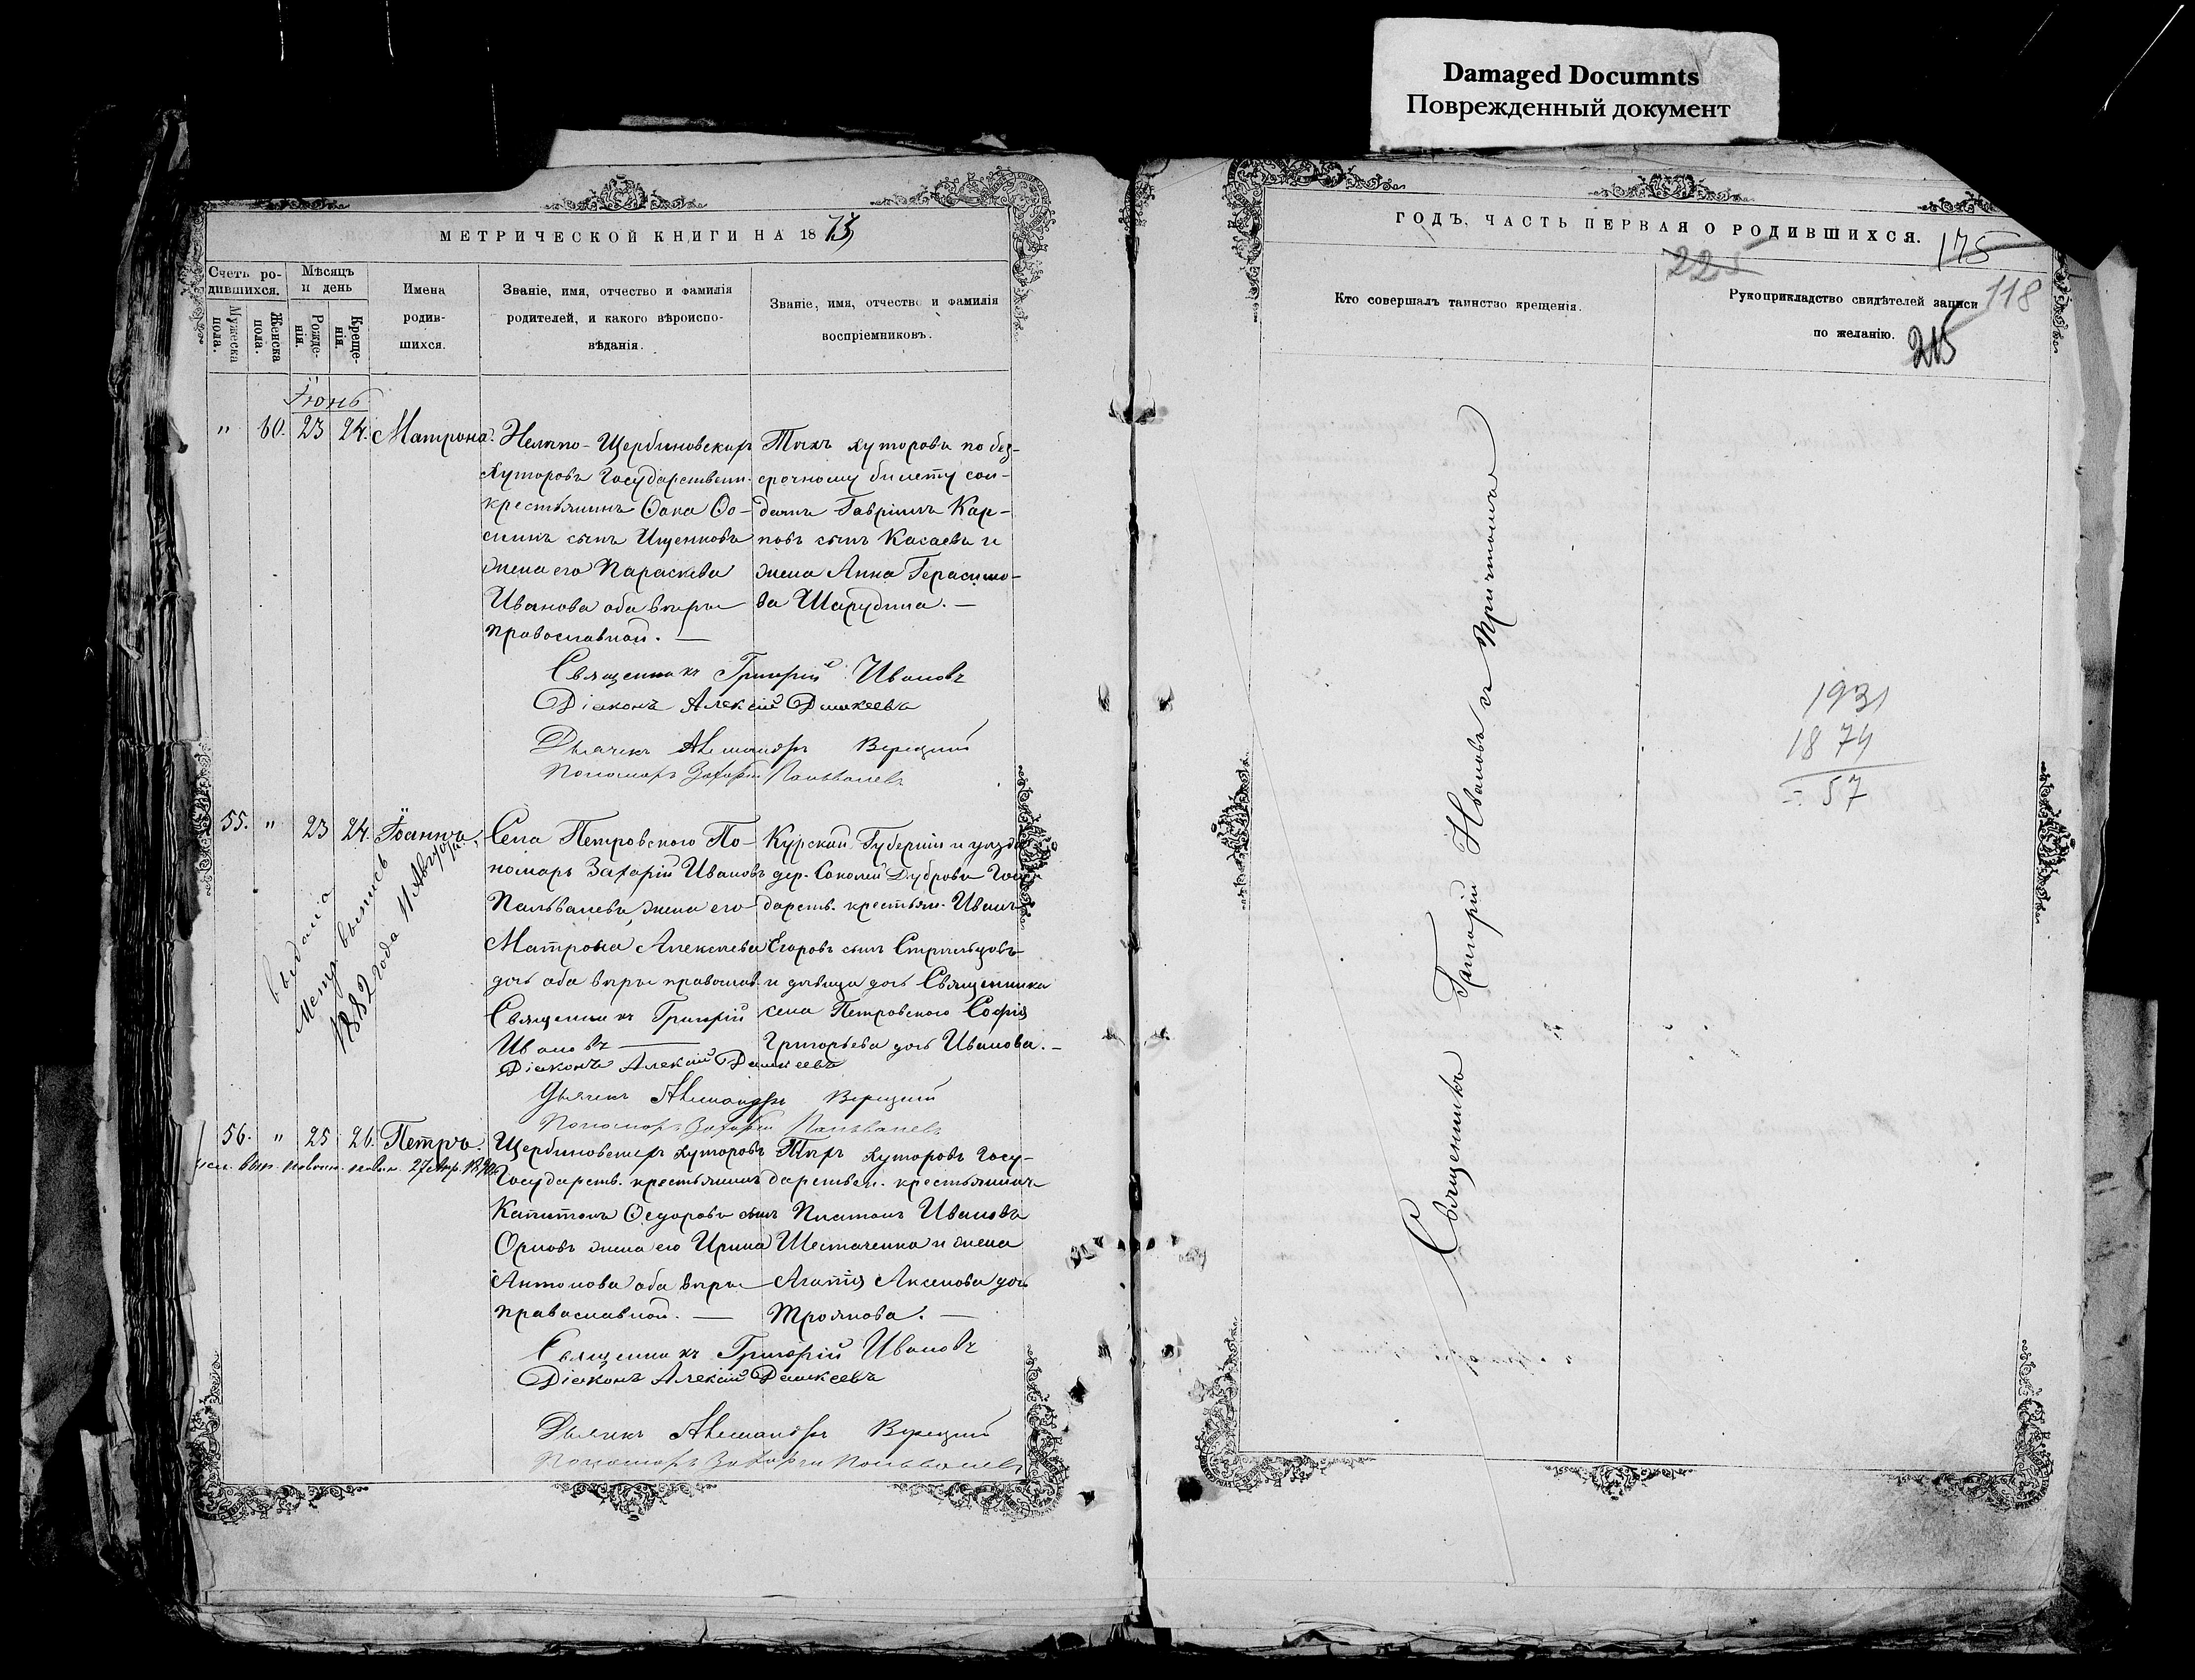 Damaged Documnts
Поврежденный документ
МЕТРИЧЕСКОЙ КНИГИ НА 1873
Счетъ ро-
дившихся.
Мѣсяцъ
и день
Мужеска
пола.
Женска
пола.
Рожде-
нія.
Креще-
нія.
Имена
родив-
шихся.
Званіе, имя, отчество и фамилія
родителей, и какого вѣроиспо-
вѣданія.
Званіе, имя, отчество и фамилія
воспріемниковъ.
Іюнь
" 60. 23 24. Матрона.
Щербиновскихъ
хуторовъ Государствен.
крестьянинъ Ѳока Ѳо-
сынъ Ищенковъ
жена его Параскева
Иванова оба вѣры
православной. —
Тѣхъ хуторовъ по без-
срочному билету сол-
датъ Гавріилъ Кар-
повъ сынъ Касаевъ и
жена Анна Герасимо-
ва Шарудина. —
Священникъ Григорій Ивановъ
Діаконъ Алексій
Дьячекъ Александръ
Пономарь Захарій Пальвалевъ
55. " 23 24. Іоаннъ,
выдана
Метр. выпись
1882 года 11 Августа
Села Петровского По-
номарь Захарій Ивановъ
Пальвалевъ жена его
Матрона Алексѣева
дочь оба вѣры православ.
Курской Губерніи и уѣзда
дер. Соколей Дубровы Госу
дарств. крестьян. Иванъ
Егоровъ сынъ Стрѣльцовъ
и дѣвица дочь Священника
села Петровского Софія
Григорьева дочь Иванова. —
Священникъ Григорій
Ивановъ —
Діаконъ Алексій
Дьячекъ Александръ
Пономарь Захарій Пальвалевъ
56. " 25 26. Петръ.
27 Апр.
Щербиновскихъ хуторовъ
Государств. крестьянинъ
Капитонъ Ѳедоровъ сынъ
Орловъ жена его Ирина
Антонова оба вѣры
православной. —
Тѣхъ хуторовъ Госу-
дарствен. крестьянинъ
Платонъ Ивановъ
Шестаченко и жена
Агапія Аксенова дочь
Троянова. —
Священникъ Григорій Ивановъ
Діаконъ Алексій
Дьячекъ Александръ
Пономарь Захарій Пальвалевъ
ГОДЪ, ЧАСТЬ ПЕРВАЯ О РОДИВШИХСЯ.
175
225
118
Кто совершалъ таинство крещенія.
Рукоприкладство свидѣтелей записи
по желанію.
215
Священникъ Григорій Ивановъ съ Причтомъ
1931
1874
= 57